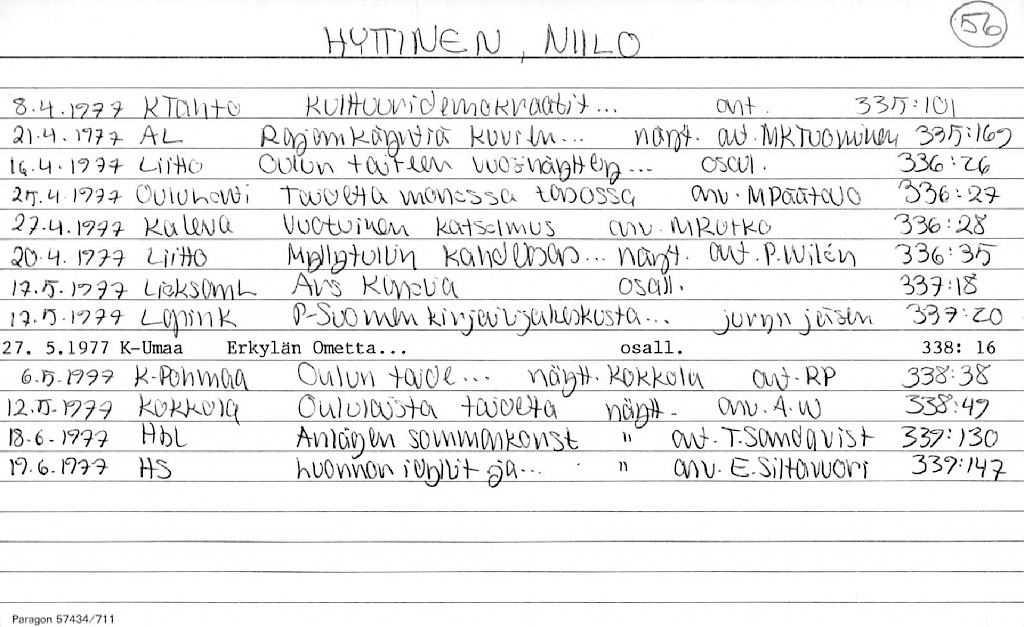 56
HYTTINEN, NIILO
8.4.1977 KTahto Kulttuuridemokraatit... ant. 335:101
21.4.1977 AL Rajankäyntiä kuvien... näyt. ant. MKTuominen 335:169
16.4.1977 Liitto Oulun taiteen vuosinäyttely... osall. 336:26
25.4.1977 Oululehti Taidetta monessa tasossa arv. MPäätalo 336:27
27.4.1977 Kaleva Vuotuinen katselmus arv. MRutko 336:28
20.4.1977 Liitto Myllytullin kahdeksas... näyt. ant. P.Wilén 336:35
17.5.1977 LieksanL Ars Karelia osall. 337:18
17.5.1977 LapinK P-Suomen kirjavuja keskusta... juryn jäsen 337:20
27. 5.1977 K-Umaa Erkylän Ometta... osall. 338: 16
6.5.1977 K-Pohmaa Oulun taide... näytt. Kokkola ant. RP 338:38
12.5.1977 Kokkola Oululaista taidetta näytt. arv. A.W 338:49
18.6.1977 HbL Anlägen sommarkonst " ant. T.Sandqvist 339:130
19.6.1977 HS Luonnon idyllit ja... " arv. E.Siltavuori 339:147
Paragon 57434/711